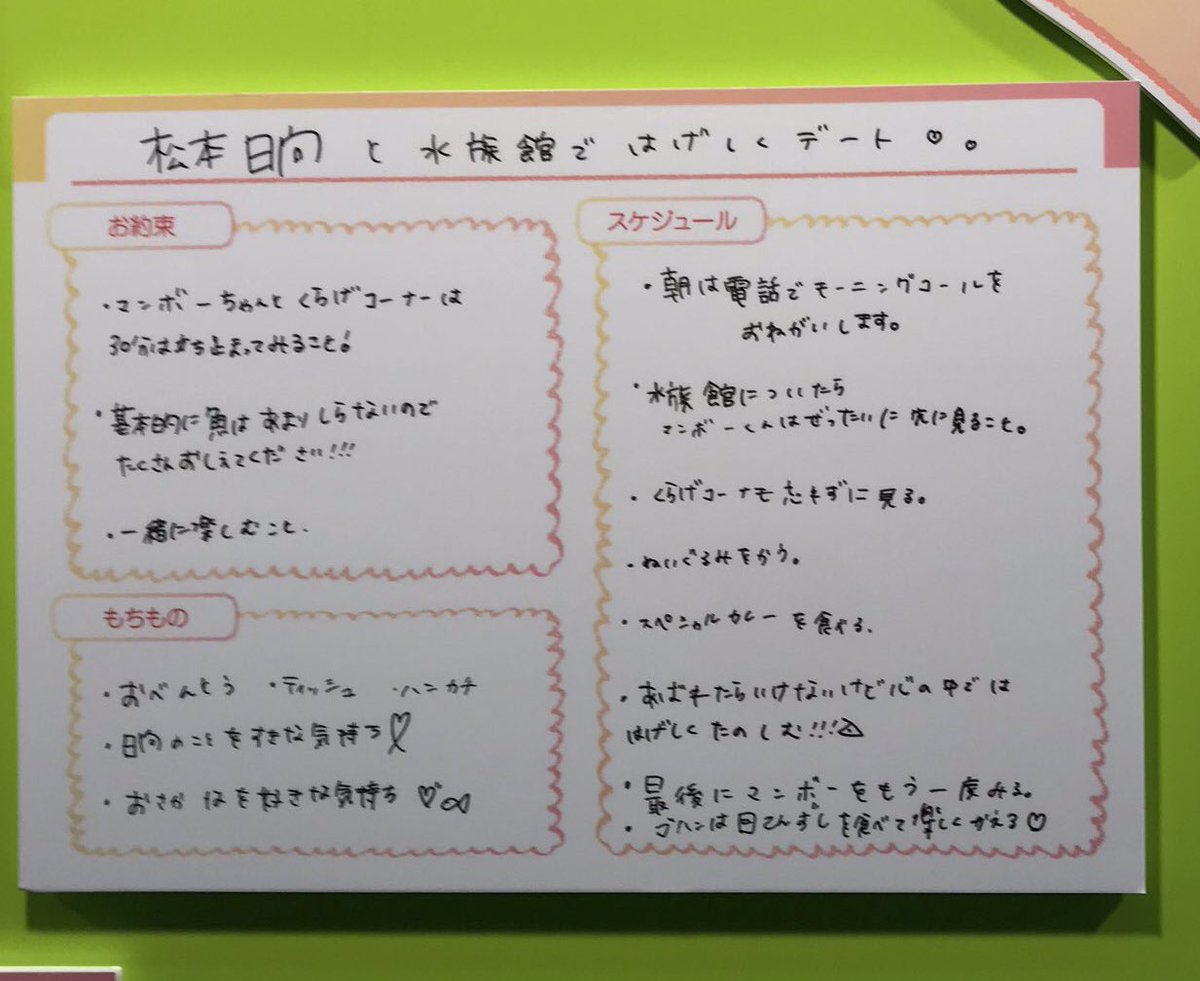 松本日向 と 水族館で はげしくデート♡。
お約束
・マンボーちゃんと くらげコーナーは
30分は立ち止まってみること!
・基本的に魚は あまりしらないので
たくさんおしえてください!!!
・一緒に楽しむこと.
もちもの
・おべんとう ・ティッシュ ・ハンカチ
・日向のことをすきな気持ち♡
・おさかなを好きな気持ち ♡∞
スケジュール
・朝は電話でモーニングコールを
おねがいします。
・水族館についたら
マンボーくんはぜったいに 先に見ること。
・くらげコーナも忘れずに見る。
・ぬいぐるみをかう。
・スペシャルカレーを食べる.
・あばれたらいけないけど心の中では
はげしくたのしむ!!!
・最後にマンボーをもう一度みる。
・ゴハンは回てんずしを食べて楽しくかえる♡